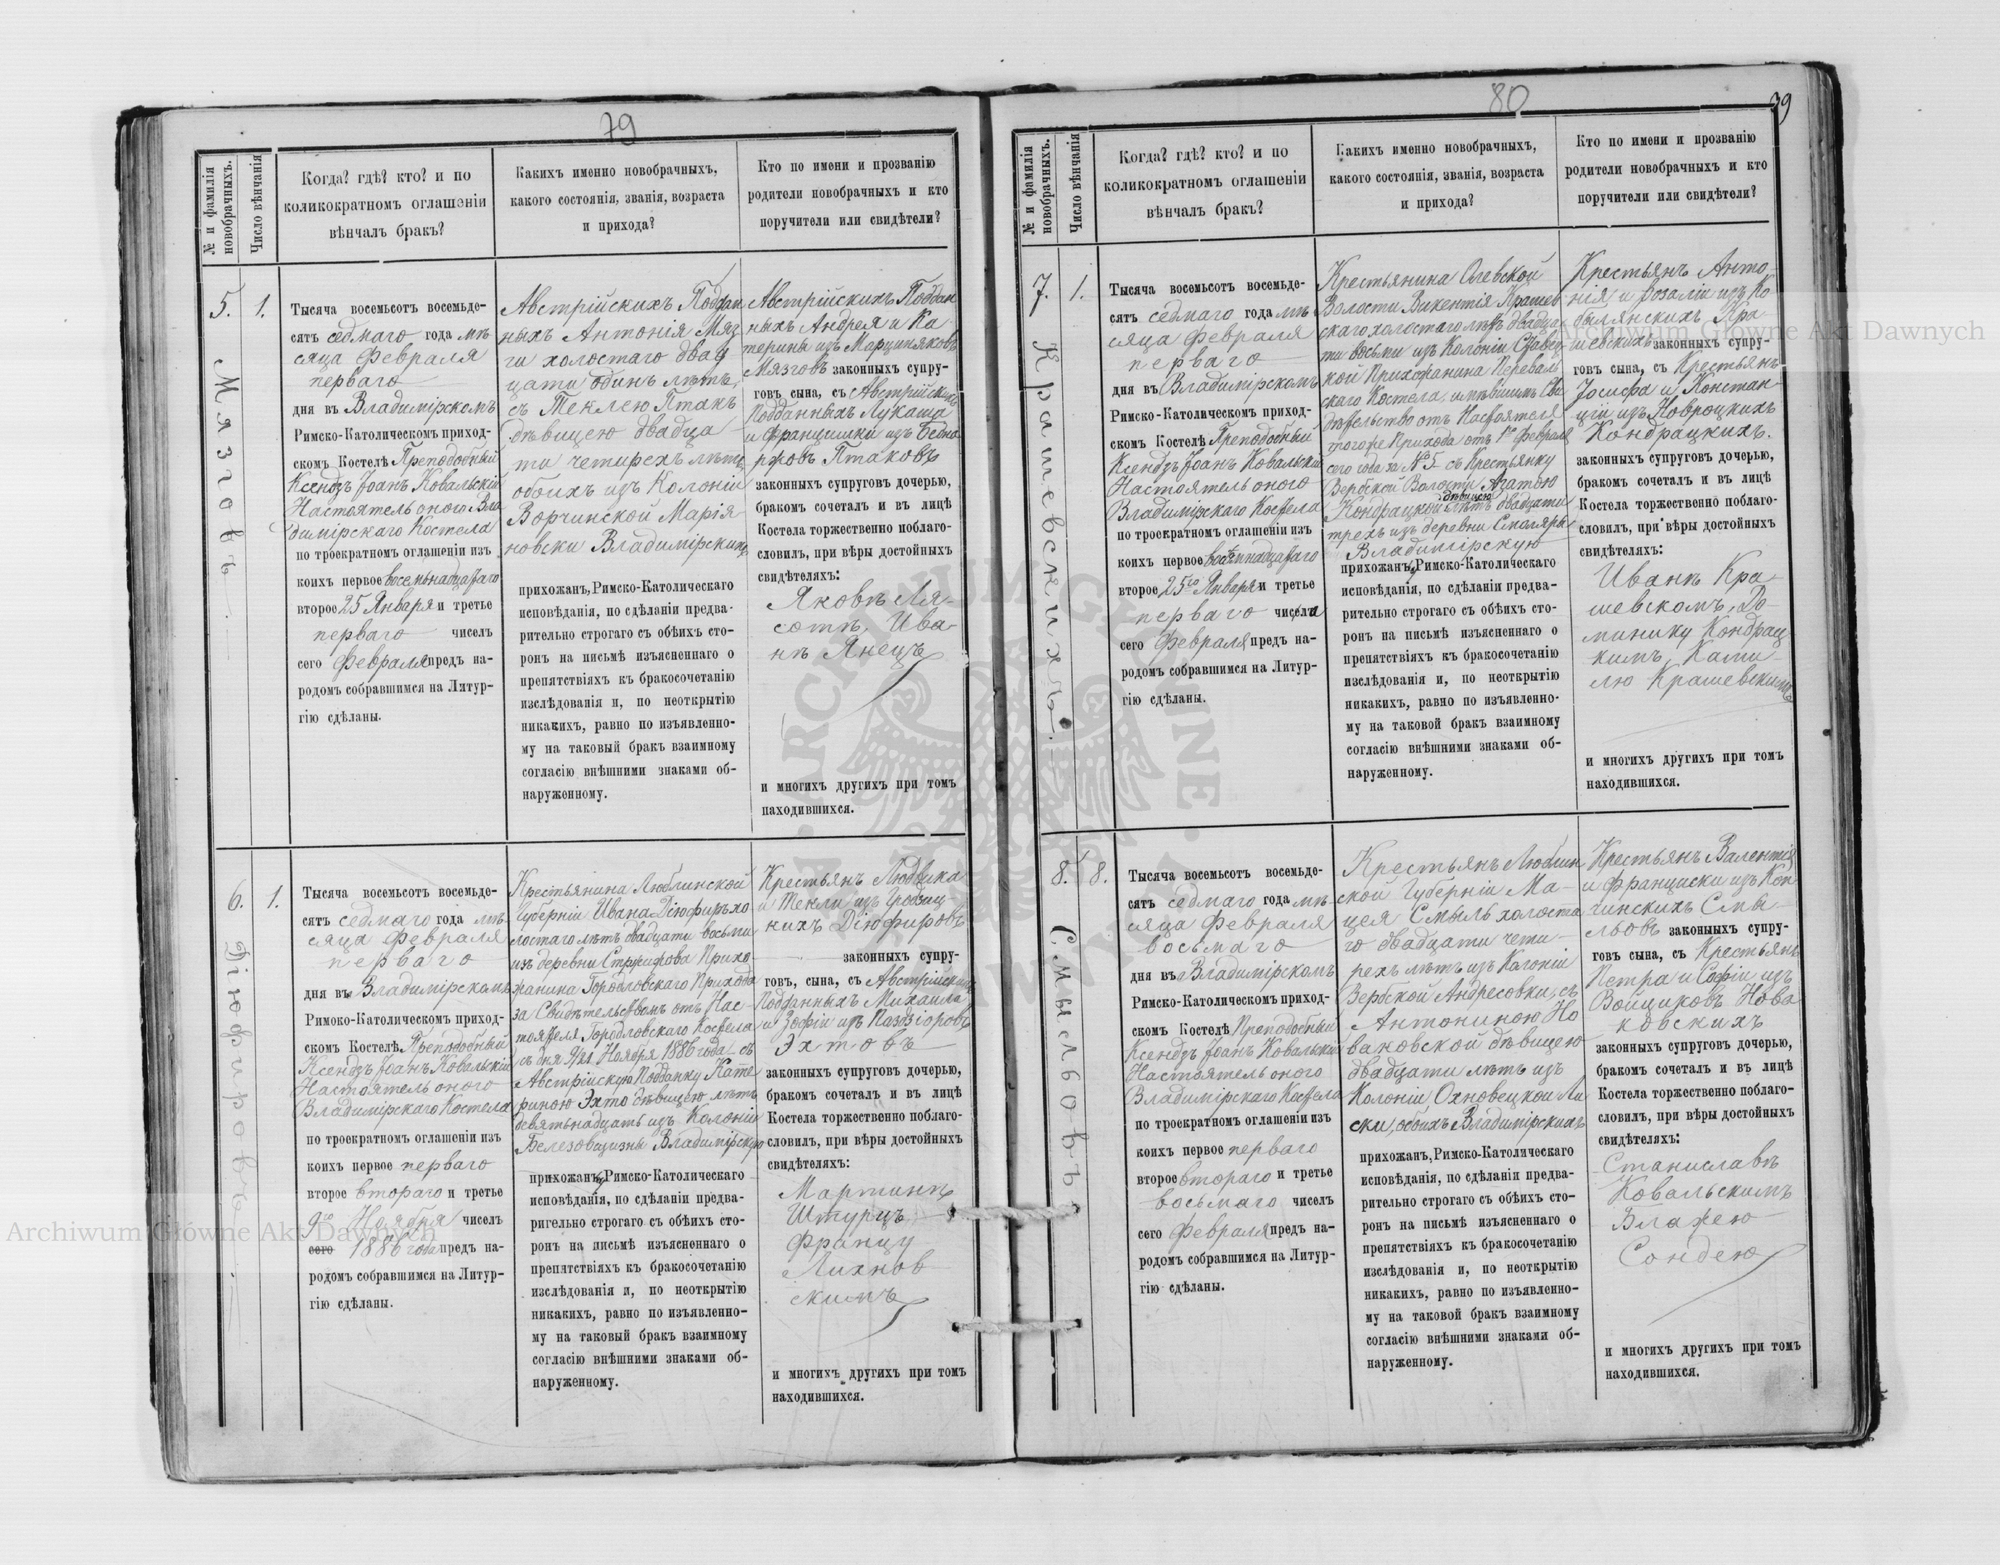 79
№ и фамилія новобрачныхъ.
Число вѣнчанія
Когда? гдѣ? кто? и по
коликократномъ оглашеніи
вѣнчалъ бракъ?
Какихъ именно новобрачныхъ,
какого состоянія, званія, возраста
и прихода?
Кто по имени и прозванію
родители новобрачныхъ и кто
поручители или свидѣтели?
5.
Мязговъ
1.
Тысяча восемьсот восемьде-
сятъ седмаго года мѣ-
сяца Февраля
перваго
дня въ Владимірскомъ
Римско-Католическомъ приход-
скомъ Костелѣ Преподобный
Ксендзъ Іоанъ Ковальскій
Настоятель оного Вла
димірскаго Костела
по троекратномъ оглашеніи изъ
коихъ первое восемьнадцатаго
второе 25 Января и третье
перваго чиселъ
сего Февраля предъ на-
родомъ собравшимся на Литур-
гію сдѣланы.
Австрійскихъ Поддан
ныхъ Антонія Мяз
ги холостаго двад
цати одинъ лѣтъ,
съ Теклею Птакъ
дѣвицею двадца-
ти четырехъ лѣтъ
обоихъ изъ Колоніи
Ворчинской Марія
новки Владимірскихъ
прихожанъ, Римско-Католическаго
исповѣданія, по сдѣланіи предва-
рительно строгаго съ обѣихъ сто-
ронъ на письмѣ изъясненнаго о
препятствіяхъ къ бракосочетанію
изслѣдованія и, по неоткрытію
никакихъ, равно по изъявленно-
му на таковый бракъ взаимному
согласію внѣшними знаками об-
наруженному.
Австрійскихъ Поддан
ныхъ Андрея и Ка
терины изъ Марциняковъ
Мязговъ законныхъ супру-
говъ сына, съ Австрійскихъ
Подданныхъ Лукаша
и Францишки изъ Бедна
ржовъ Птаковъ
законныхъ супруговъ дочерью,
бракомъ сочеталъ и въ лицѣ
Костела торжественно поблаго-
словилъ, при вѣры достойныхъ
свидѣтеляхъ:
Яковѣ Ля-
сотѣ, Ива-
нѣ Янецъ
и многихъ другихъ при томъ
находившихся.
6.
Дюфировъ
1.
Тысяча восемьсотъ восемьде-
сятъ седмаго года мѣ-
сяца Февраля
перваго
дня въ Владимірскомъ
Римско-Католическомъ приход-
скомъ Костелѣ Преподобный
Ксендзъ Іоанъ Ковальскій
Настоятель оного
Владимірскаго Костела
по троекратномъ оглашеніи изъ
коихъ первое перваго
второе втораго и третье
9го Ноября чиселъ
сего 1886 года предъ на-
родомъ собравшимся на Литур-
гію сдѣланы.
Крестьянина Люблинской
Губерніи Ивана Дюфиръ хо
лостаго лѣтъ двадцати восьми
изъ деревни Прихо
жанина Городловскаго Прихода
за Свидѣтельствомъ отъ Нас-
тоятеля Городловскаго Костела
съ дня 9/21 Ноября 1886 года съ
Австрійскую Подданку Кате
риною Эхтъ дѣвицею лѣтъ
девятьнадцать изъ Колоніи
Владимірскую
прихожанъ, Римско-Католическаго
исповѣданія, по сдѣланіи предва-
рительно строгаго съ обѣихъ сто-
ронъ на письмѣ изъясненнаго о
препятствіяхъ къ бракосочетанію
изслѣдованія и, по неоткрытію
никакихъ, равно по изъявленно-
му на таковый бракъ взаимному
согласію внѣшними знаками об-
наруженному.
Крестьянъ Людвика
и Текли изъ
Дюфировъ
законныхъ супру-
говъ, сына, съ Австрійскихъ
Подданныхъ Михаила
и Зофіи изъ
Эхтовъ
законныхъ супруговъ дочерью,
бракомъ сочеталъ и въ лицѣ
Костела торжественно поблаго-
словилъ, при вѣры достойныхъ
свидѣтеляхъ:
Мартинѣ
Штурцъ
Францу
Лихнов
скимъ
и многихъ другихъ при томъ
находившихся.
80
39
№ и фамилія новобрачныхъ.
Число вѣнчанія
Когда? гдѣ? кто? и по
коликократномъ оглашеніи
вѣнчалъ бракъ?
Какихъ именно новобрачныхъ,
какого состоянія, званія, возраста
и прихода?
Кто по имени и прозванію
родители новобрачныхъ и кто
поручители или свидѣтели?
7.
Крашевскихъ
1.
Тысяча восемьсотъ восемьде-
сятъ седмаго года мѣ-
сяца Февраля
перваго
дня въ Владимірскомъ
Римско-Католическомъ приход-
скомъ Костелѣ Преподобный
Ксендзъ Іоанъ Ковальскій
Настоятель оного
Владимірскаго Костела
по троекратномъ оглашеніи изъ
коихъ первое восемнадцатаго
второе 25го Января и третье
перваго числа
сего Февраля предъ на-
родомъ собравшимся на Литур-
гію сдѣланы.
Крестьянина Олевской
Волости Викентія Крашев
скаго холостаго лѣтъ двадца
ти восьми изъ Колоніи
Прихожанина Переваль
скаго Костела, имѣвшимъ Сви
дѣтельство отъ Настоятеля
тогоже Прихода отъ 1го Февраля
сего года за №5 съ Крестьянку
Вербской Волости Агатою
Кондрацкой дѣвицею лѣтъ двадцати
трехъ изъ деревни Смоляры
Владимірскую
прихожанъ, Римско-Католическаго
исповѣданія, по сдѣланіи предва-
рительно строгаго съ обѣихъ сто-
ронъ на письмѣ изъясненнаго о
препятствіяхъ къ бракосочетанію
изслѣдованія и, по неоткрытію
никакихъ, равно по изъявленно-
му на таковой бракъ взаимному
согласію внѣшними знаками об-
наруженному.
Крестьянъ Анто-
нія и Розаліи изъ Ко
былянскихъ Кра-
шевскихъ законныхъ супру-
говъ сына, съ Крестьянъ
Іосифа и Констан-
ціи изъ Новроцкихъ
Кондрацкихъ.
законныхъ супруговъ дочерью,
бракомъ сочеталъ и въ лицѣ
Костела торжественно поблаго-
словилъ, при вѣры достойныхъ
свидѣтеляхъ:
Иванѣ Кра-
шевскомъ, До
минику Кондрац
кимъ, Ками-
лю Крашевскимъ
и многихъ другихъ при томъ
находившихся.
8.
Смыльовъ
8.
Тысяча восемьсотъ восемьде-
сятъ седмаго года мѣ-
сяца Февраля
восьмаго
дня въ Владимірскомъ
Римско-Католическомъ приход-
скомъ Костелѣ Преподобный
Ксендзъ Іоанъ Ковальскій
Настоятель оного
Владимірскаго Костела
по троекратномъ оглашеніи изъ
коихъ первое перваго
второе втораго и третье
восьмаго чиселъ
сего Февраля предъ на-
родомъ собравшимся на Литур-
гію сдѣланы.
Крестьянъ Люблин
ской Губерніи Ма-
цея Смыль холоста
го двадцати чети-
рехъ лѣтъ изъ Колоніи
Вербской Андресовки, съ
Антониною Но
ваковской дѣвицею
двадцати лѣтъ изъ
Колоніи Охновецкой Ли
ски, обоихъ Владимірскихъ
прихожанъ, Римско-Католическаго
исповѣданія, по сдѣланіи предва-
рительно строгаго съ обѣихъ сто-
ронъ на письмѣ изъясненнаго о
препятствіяхъ къ бракосочетанію
изслѣдованія и, по неоткрытію
никакихъ, равно по изъявленно-
му на таковой бракъ взаимному
согласію внѣшними знаками об-
наруженному.
Крестьянъ Валентія
и Франциски изъ Коп
чинскихъ Смы-
льовъ законныхъ супру-
говъ сына, съ Крестьянъ
Петра и Софіи изъ
Войциковъ Нова
ковскихъ
законныхъ супруговъ дочерью,
бракомъ сочеталъ и въ лицѣ
Костела торжественно поблаго-
словилъ, при вѣры достойныхъ
свидѣтеляхъ:
Станиславѣ
Ковальскимъ
Блажею
Сондею
и многихъ другихъ при томъ
находившихся.
Archiwum Główne Akt Dawnych
Archiwum Główne Akt Dawnych